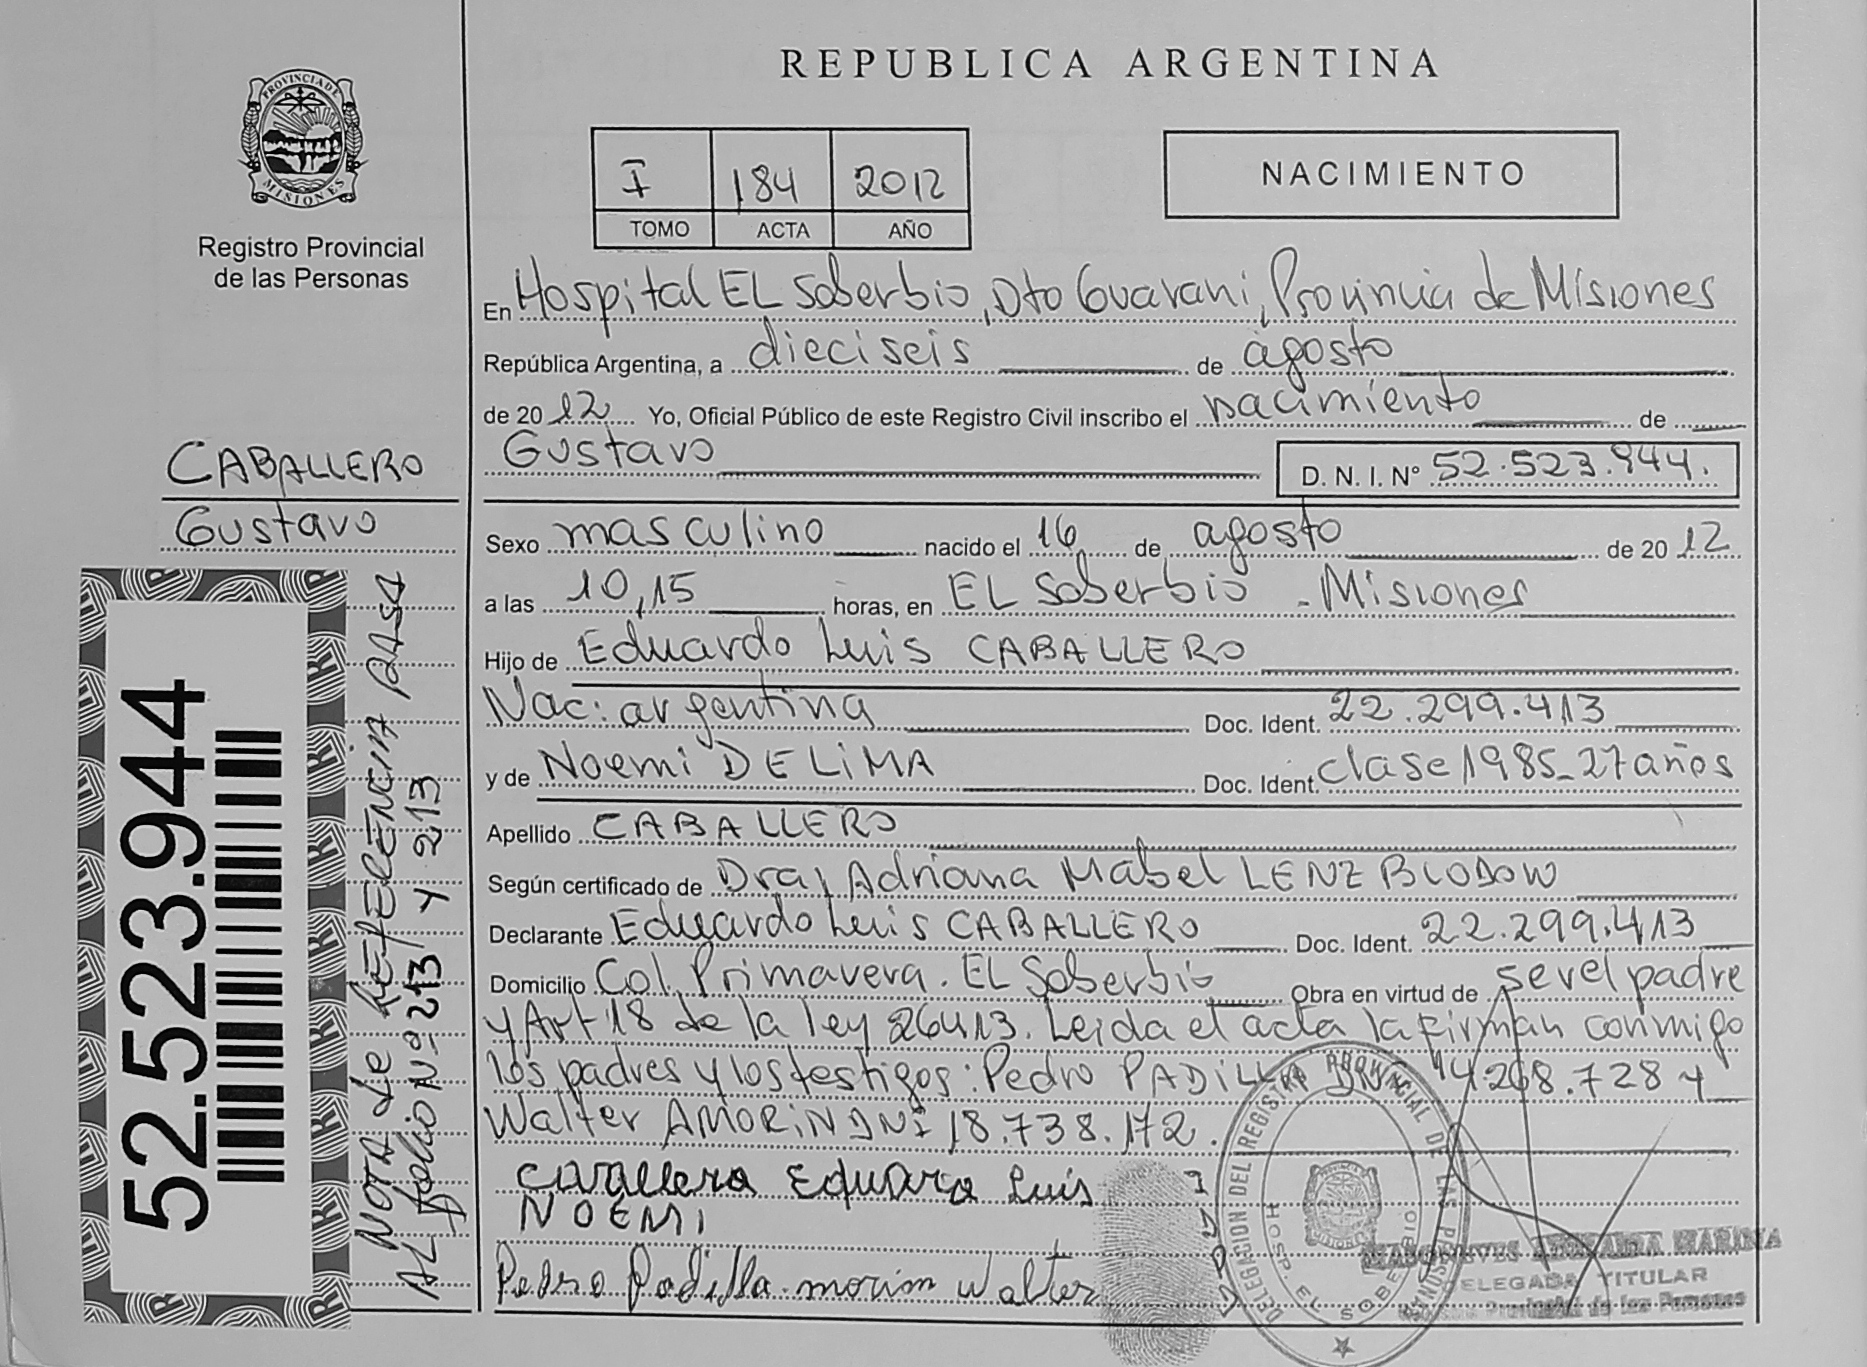 REPUBLICA ARGENTINA
PROVINCIA DE MISIONES
Registro Provincial
de las Personas
I 184 2012
TOMO ACTA AÑO
NACIMIENTO
En Hospital EL Soberbio, Dto Guarani, Provincia de Misiones
República Argentina, a dieciseis de agosto
de 20 12 Yo, Oficial Público de este Registro Civil inscribo el nacimiento de
Gustavo D. N. I. Nº 52.523.944.
CABALLERO
Gustavo
Sexo masculino nacido el 16 de agosto de 20 12
a las 10,15 horas, en EL Soberbio - Misiones
Hijo de Eduardo Luis CABALLERO
Nac: argentina Doc. Ident. 22.299.413
y de Noemi DE LiMA Doc. Ident. clase 1985-27 años
Apellido CABALLERO
Según certificado de Dra, Adriana Mabel LENZ BLODOW
Declarante Eduardo Luis CABALLERO Doc. Ident. 22.299.413
Domicilio Col. Primavera. EL Soberbio Obra en virtud de ser el padre
y Art 18 de la ley 26413. Leida el acta la firman conmigo
los padres y los testigos: Pedro PADiLLA DNI 14.268.728 y
Walter AMORiN DNI 18.738.172.
Cavallero Eduardo Luis
NOEMI
Pedro Padilla morion Walter
52.523.944
NOTA de REFERENCIA PASA
AL folio Nº 213 y 213
DELEGACION DEL REGISTRO PROVINCIAL DE LAS PERSONAS
HOSP. EL SOBERBIO
MARINA
DELEGADA TITULAR
Provincial de las Personas